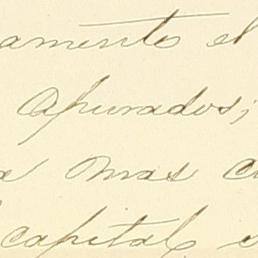 amento el
apurados;
a mas c
capital